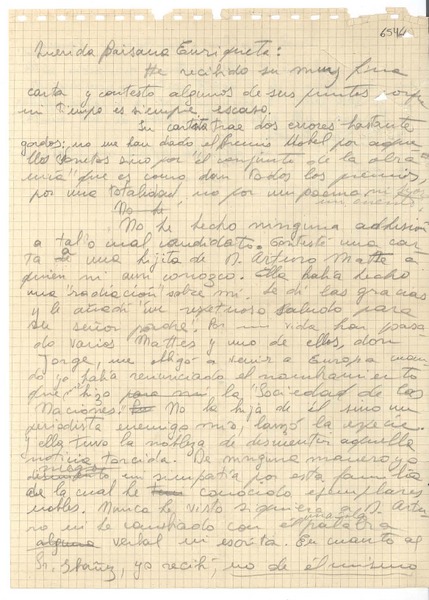 6544
Querida Paisana Enriqueta:
He recibido su muy fina
carta y contesto algunos de sus puntos porque
mi tiempo es siempre escaso.
Su cartita trae dos errores bastante
gordos; no me han dado el Premio Nobel por aque
llos Sonetos sino por "el conjunto de la obra
mía" que es como dan todos los premios,
por una totalidad, no por un poema, ni
un cuento.
No he
No he hecho ninguna adhesión
a tal o cual candidato. Contesté una car
ta a una hijita de D. Arturo Matte a
quien ni aun conozco. Ella había hecho
una "radiación" sobre mí. Le di las gracias
y le añadí un respetuoso saludo para
su señor padre. Por mi vida han pasa
do varios Mattes y uno de ellos, don
Jorge, me obligó a venir a Europa cuan
do yo había renunciado el nombramiento
que hizo para mí la "Sociedad de las
Naciones". No la hija de él sino un
periodista enemigo mío, lanzó la especie
y ella tuvo la nobleza de desmentir aquella
noticia torcida. De ninguna manera yo
niego
mi simpatía por esta familia
de la cual he conocido ejemplares
nobles. Nunca he visto siquiera a D. Artu
ro ni he cambiado con él palabra
alguna verbal ni escrita. En cuanto al
Sr. Ibáñez, yo recibí, no de él mismo